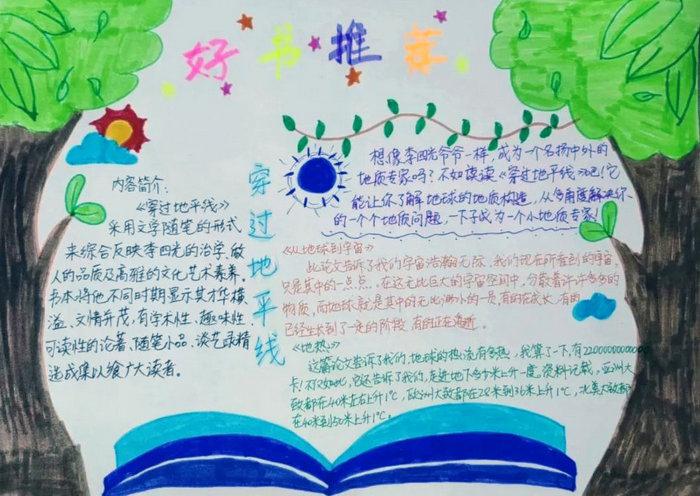 好书推荐
内容简介：
《穿过地平线》
采用文学随笔的形式
来综合反映李四光的治学、做
人的品质及高雅的文化艺术素养。
书本将他不同时期显示其才华横
溢、文情并茂，有学术性、趣味性、
可读性的论著、随笔小品、谈艺录精
选成集以飨广大读者。
穿过地平线
想像李四光爷爷一样，成为一个名扬中外的
地质专家吗？不如读读《穿过地平线》吧！它
能让你了解地球的地质构造，从多角度解决你
的一个个地质问题，一下子成为一个小地质专家！
《从地球到宇宙》
此论文告诉了我们宇宙浩瀚无际，我们现在所看到的宇宙，
只是其中的一点点，在这无比巨大的宇宙空间中，分散着许许多多的
物质，而地球就是其中的无比渺小的一员，有的在成长，有的
已经生长到了一定的阶段，有的正在消逝。
《地热》
这篇论文告诉了我们，地球的热流有多热，我算了一下，有
卡！不仅如此，它还告诉了我们，走进地下多少米上升一度。资料记载，亚洲大
致都在40米左右上升1℃，欧洲大致都在28米到36米上升1℃，北美大致都
在40米到50米上升1℃。